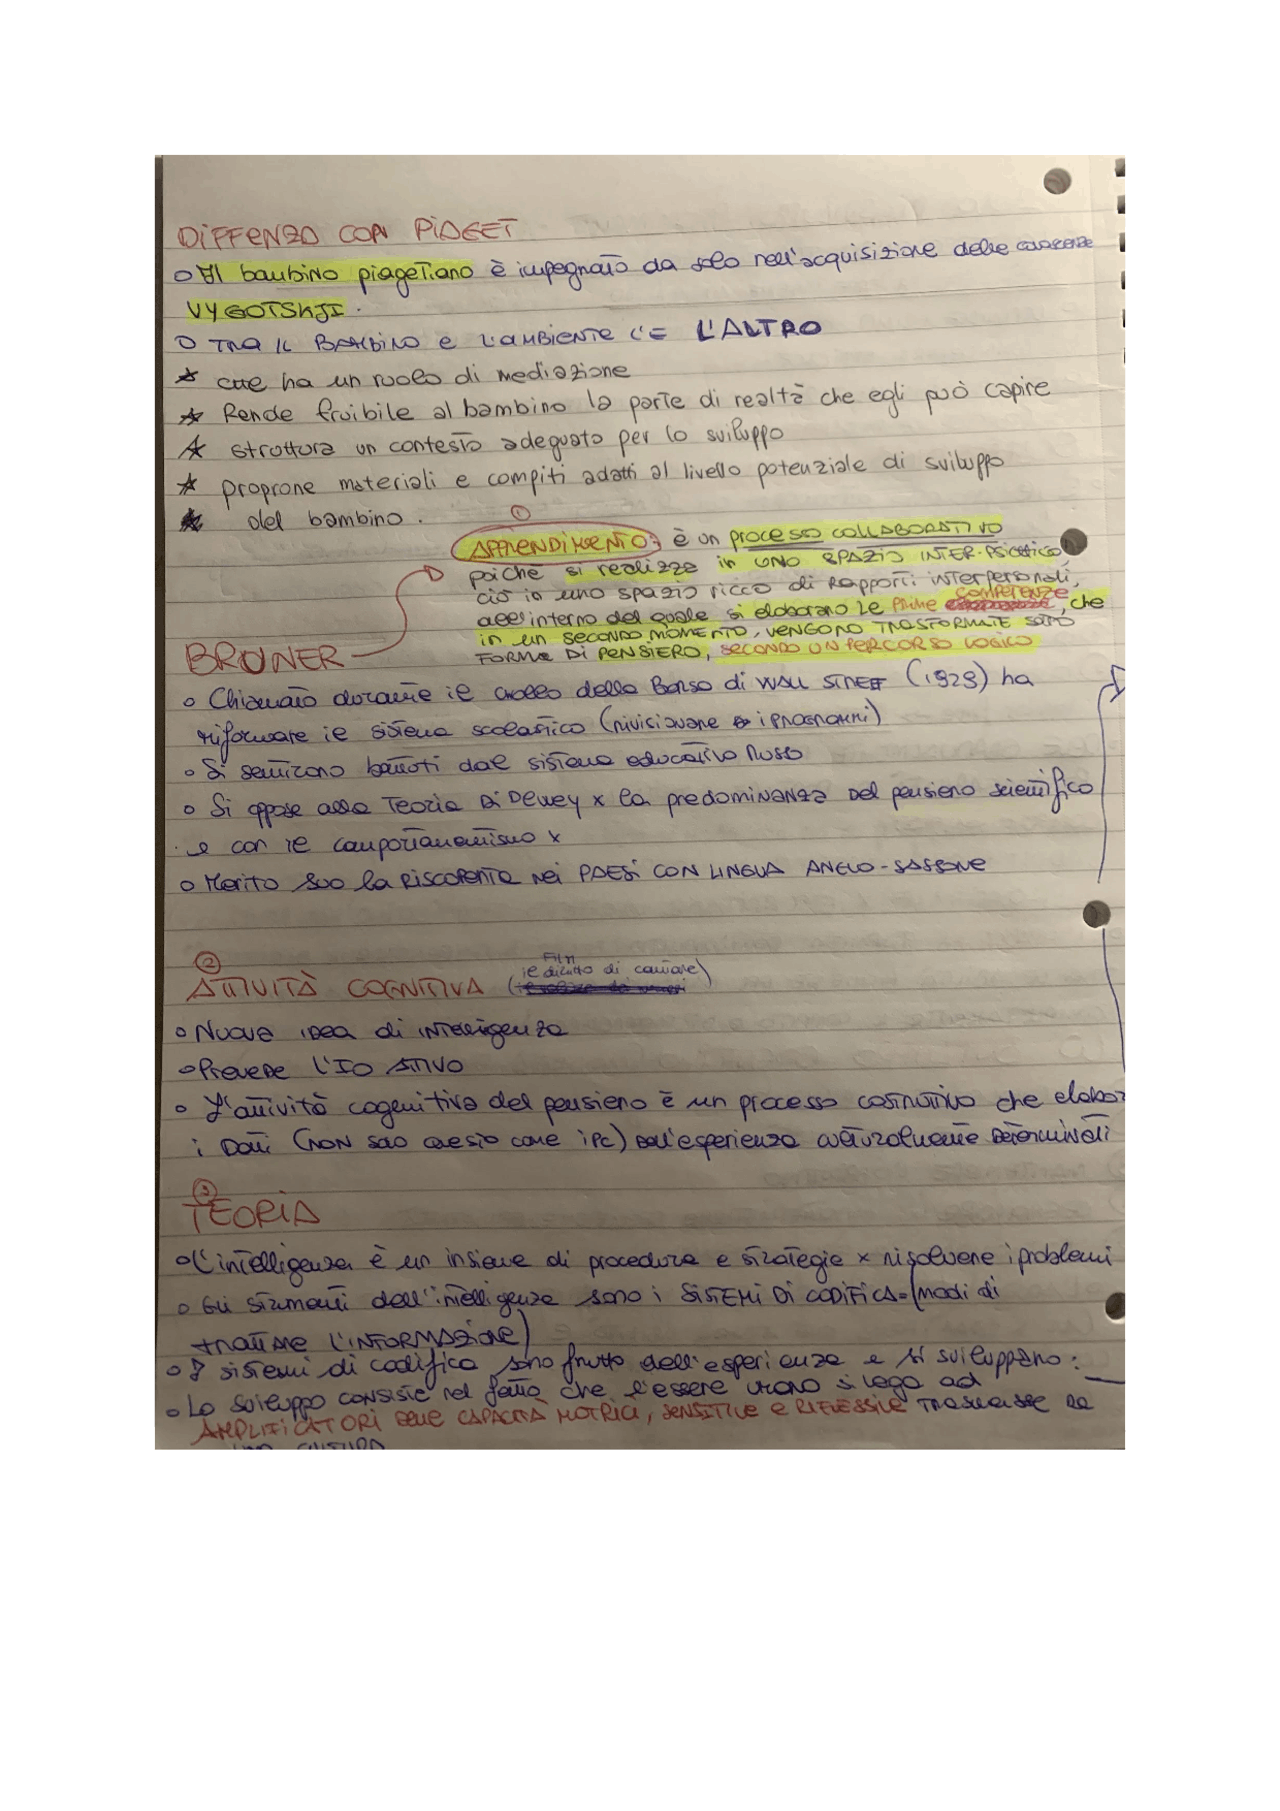 DIFFENZA CON PIAGET
Il bambino piagetiano è impegnato da solo nell'acquisizione delle
VYGOTSKJI.
TRA IL BAMBINO e L'AMBIENTE C'È L'ALTRO
che ha un ruolo di mediazione
Rende fruibile al bambino la parte di realtà che egli può capire
struttura un contesto adeguato per lo sviluppo
proprone materiali e compiti adatti al livello potenziale di sviluppo
del bambino.
① APPRENDIMENTO: è un processo COLLABORATIVO
poiché si realizza in UNO SPAZIO INTER-PSICHICO,
ciò in uno spazio ricco di Rapporti interpersonali,
all'interno del quale si elaborano le prime COMPETENZE, che
in un SECONDO MOMENTO, VENGONO TRASFORMATE SOTTO
FORMA DI PENSIERO, SECONDO UN PERCORSO LOGICO
BRUNER
Chiamato durante il crollo della Borsa di WALL STREET (1929) ha
riformare il sistema scolastico (i PROGRAMMI)
Si sentirono battuti dal sistema educativo Russo
Si oppose alla Teoria Di Dewey x la predominanza Del pensiero scientifico
e con il comportamentismo x
Merito suo la RISCOPERTA nei PAESI CON LINGUA ANGLO-SASSONE
②
ATTIVITÀ COGNITIVA (Film il diritto di contare)
Nuova IDEA di INTelligenza
Prevede L'IO ATTIVO
L'attività cognitiva del pensiero è un processo costruttivo che elabor
i Dati (NON solo come i PC) Dall'esperienza culturalmente Determinati
③
TEORIA
L'intelligenza è un insieme di procedure e strategie x risolvere i problemi
Gli strumenti dell'intelligenza sono i SISTEMI DI CODIFICA=(modi di
trattare L'INFORMAZIONE)
I sistemi di codifica sono frutto dell'esperienza e si sviluppano:
Lo sviluppo consiste nel fatto che l'essere umano si lega ad
AMPLIFICATORI delle CAPACITÀ MOTRICI, SENSITIVE e RIFLESSIVE TRASMESSE DA
una CULTURA